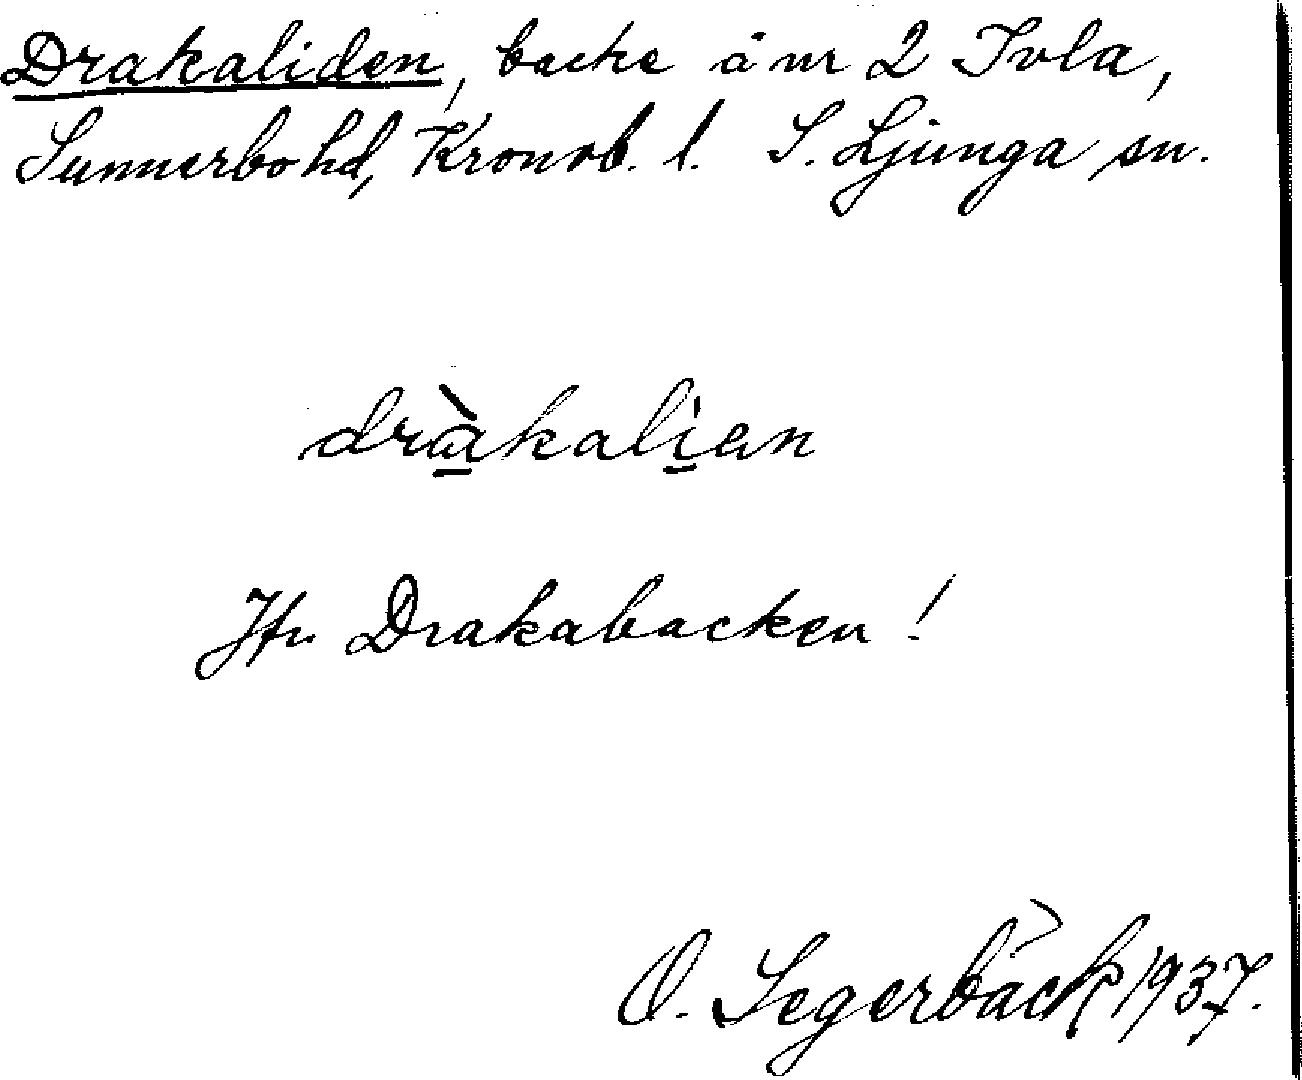 Drakaliden, backe å nr 2 Ivla,
Sunnerbo hd, Kronob. l. S. Ljunga sn.
dràkalien
Jfr Drakabacken!
O. Segerbäck 1937.